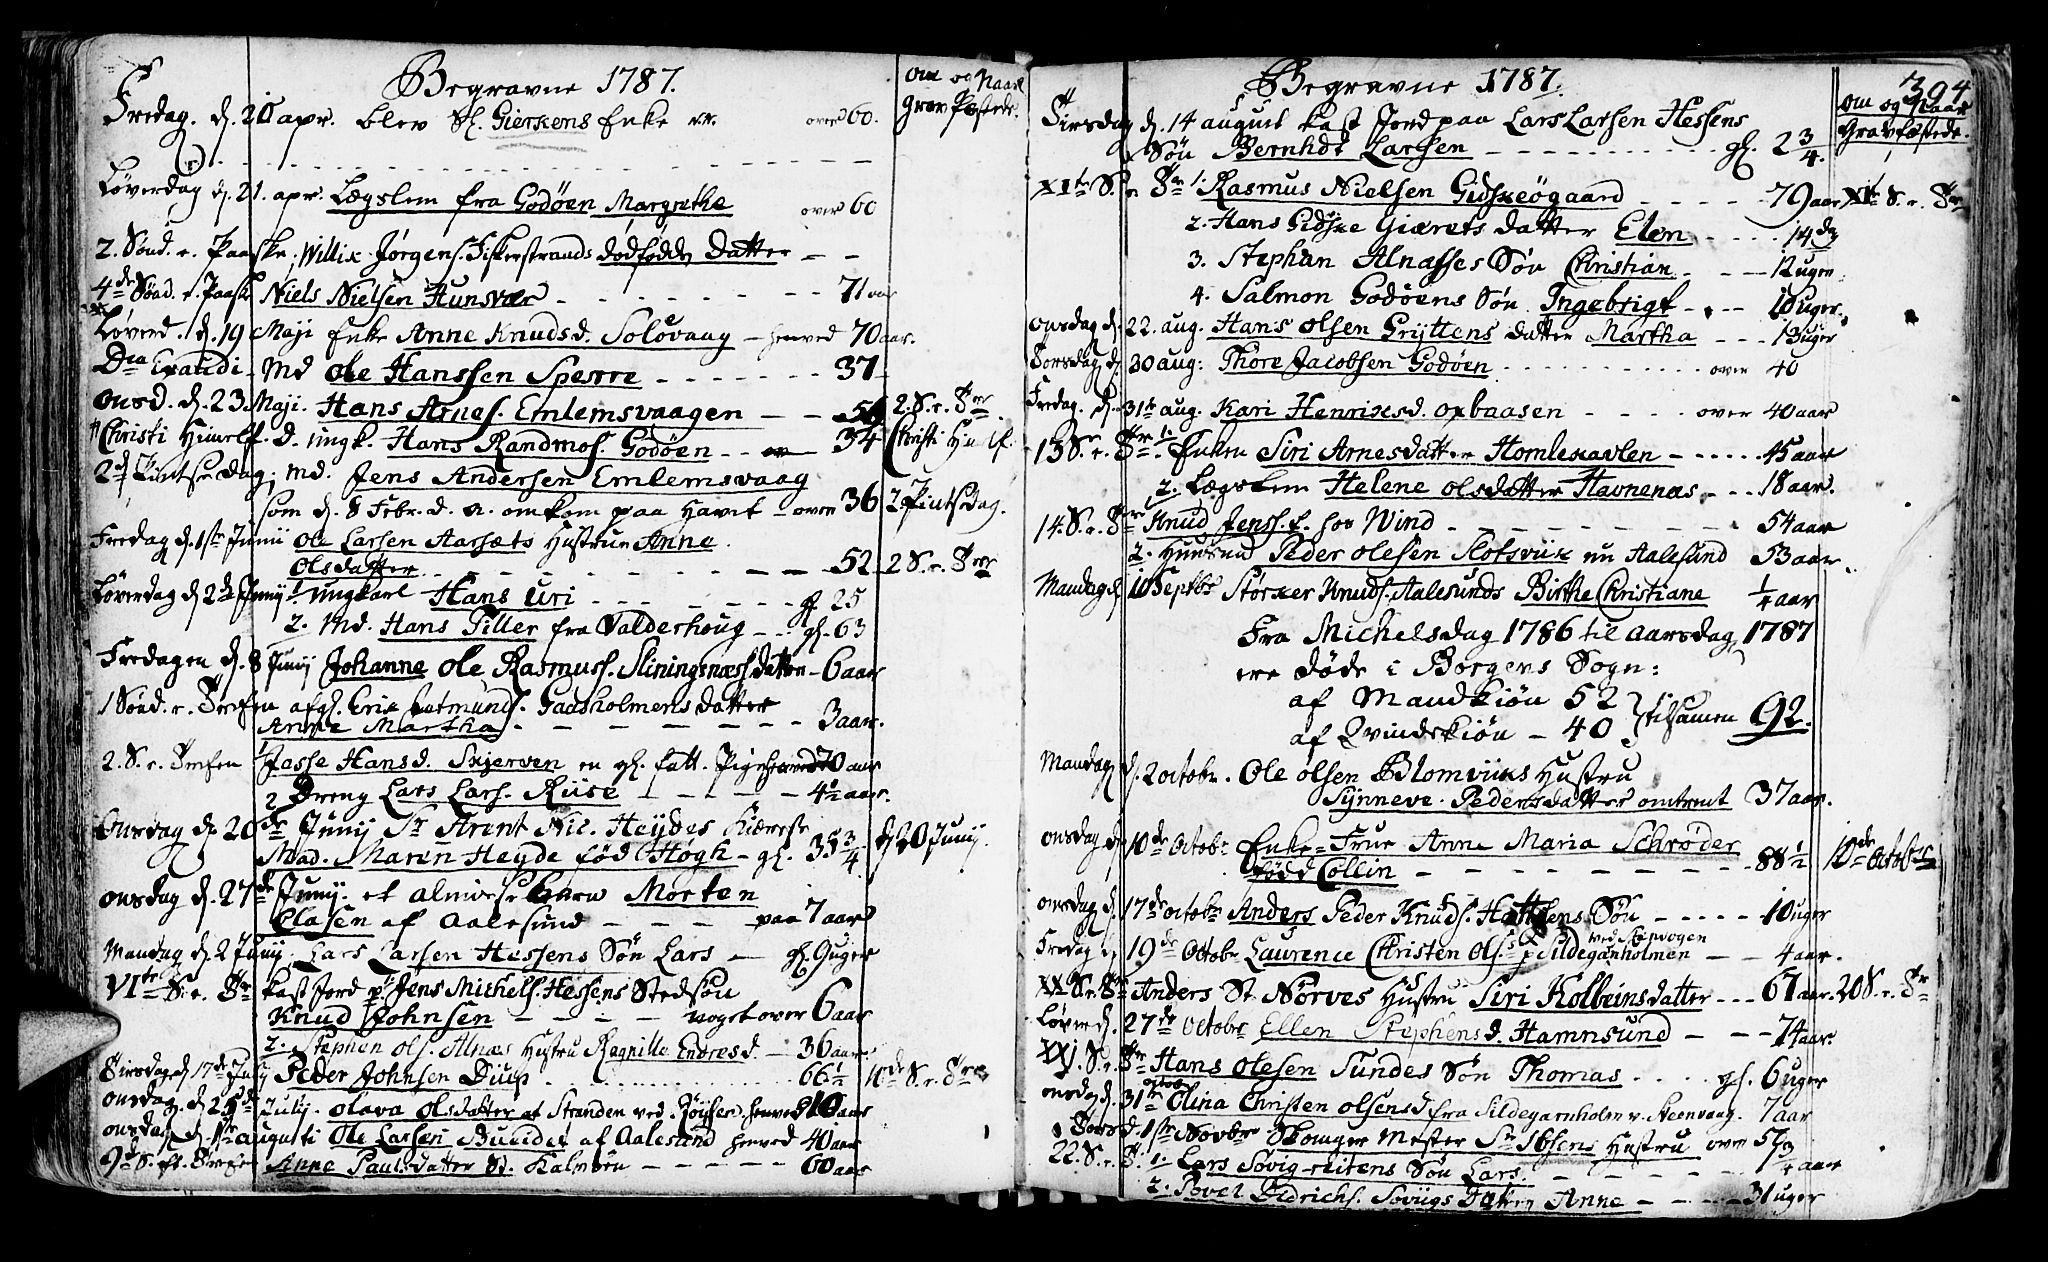 Begravne 1787.
om og Naar
Grav Fæstede.
Fredag. d. 20 apr. blev Sl. Gierxens Enke
over 60.
Løverdag d. 21. apr. Lægslem fra Godøen Margrethe
over 60
2. Sønd. e. Paaske. Willix Jørgens. Fiskerstrands dødfødde Datter - -
4de Sønd. e. Paaske Niels Nielsen Hunsvær - - - 71 aar
Løverd. d. 19 Maji Enke Anne Knudsd. Soløvaag - henved 70 aar.
Dca Exaudi. Md Ole Hanssen Sperre - - - 37
Onsd. d. 23. Maji. Hans Arnes. Emlemsvaagen - - 2. S. e. Tr
Christi Himelf. d. ungk. Hans Randmos. Godøen - - 34 Christi Himlf.
2d Pintsedag; md. Jens Andersen Emlemsvaag
som d. 8 Febr. d. a. omkom paa Havet - over 36 2 Pintsedag.
Fredag d. 1ste Junii Ole Larsen Aarsæts Hustrue Anne
Olsdatter - - - 52 2 S. e. Tr
Løverdag d 2de Junij 1. ungkarl Hans Uri - - - 25
2. Md. Hans Giller fra Valderhoug - - gl. 63
Fredagen d. 8 Junij Johanne Ole Rasmuss. Sliningsnæss datter - 6 aar
1 Sønd. e. Trefen afgl. Eric Gadsholmens datter
Anne Martha - - - 3 aar.
2. S. e. Trefen Jasse Hansd. Skjerven en gl. fatt. Pige henved 70 aar
2 Dreng Lars Lars. Riise - - - 4½ aar.
Onsdag d. 20de Junij Sr Arent Nic. Heydes Kiæreste
Mad. Maren Heyde fød Høgh - gl. 35 3/4 d 20 Junij.
onsdag d. 27de Junij. et almisse Morten
Clasen af Aalesund - - - paa 7 aar
Mandag d. 2 Lars Larsen Hessens Søn Lars - gl. 9 uger
VIte S. e. Tr kast Jord p Jens Michels. Hessens Stedsøn
Knud Johnsen - - - noget over 6 aar
2. Stephen Ols. Alnæs Hustru Ragnille Endresd. - 36 aar
Tirsdag d 17de July Peder Johnsen Diup - - - 66½ 10de S. e. Tre
onsdag. d. 25de July. Olava Olsdatter af Stranden ved henved 10 aar
onsdag d. 1ste augusti Ole Larsen af Aalesund henved 40 aar
9de S. eft. Trefen Anne Paulsdatter St. Kalmøen - - - 60 aar
Begravne 1787.
394
om og Naar
Gravfæstede.
Tirsdag d. 14 august kast Jord paa Lars Larsen Hessens
Søn Bernhdt Larsen - - - gl. 2 3/4.
XIte S. e. Tr 1. Rasmus Nielsen Gidskeøgaard - - - 79 aar XIte S. e. Tr
2. Hans Gidske Giærets datter Elen - - - 14 dg
3. Stephan Alnæsses Søn Christian - - - 12 uger
4. Salmon Godøens Søn Ingebrigt - - - 10 uger.
onsdag d. 22. aug. Hans Olsen Gryttens datter Martha - - - 13 uger
Torsdag d. 30 aug: Thore Jacobsen Godøen - - - over 40
Fredag. d. 31te aug: Kari Henrixsd. oxbaasen - - - over 40 aar
13 S. e. Tr 1. Enken Siri Arnesdatter Homlexavlen - - - 45 aar
2. Lægslem Helene olsdatter Havnenæs - - - 18 aar.
14. S. e. Tr Knud Jenss. f. hos Wind - - - 54 aar
2. Huusmd Peder Olesen Slotsviik nu Aalesund 53 aar.
Mandag d. 10 Septbr Størker Knuds. Aalesunds Birthe Christiane ¼ aar
Fra Michelsdag 1786 til aarsdag 1787
ere døde i Borgens Sogn:
af Mandkiøn 52
af Qvindekiøn - 40
tilsamen 92.
Mandag d. 2 octobr. Ole Olsen Blomviiks Hustru
Synneve Pedersdatter omtrent 37 aar.
onsdag d. 10de Octobr Enke-Frue Anne Maria Schrøder
fødd Collin - - - 88½ 10de Octobr
onsdag d. 17de octobr Anders Peder Knuds. Søn - - - 10 uger
Fredag d. 19de Octobr Laurence Christen Ols. p Sildegarnholmen - - 4 aar.
XX S. e. Tr Anders St. Nørves Hustru Siri Kolbeinsdatter - - - 67 aar. 20 S. e. Tr
Løverd. 27de Octobr Ellen Stephensd. Hamnsund - - 74 aar.
XXj S. e. Tr Hans Olesen Sundes Søn Thomas - - - gl. 6 uger
onsdag d. 31te octobr Olina Christen Olsensd fra Sildegarnholm v. Steenvaag. 7 aar
Torsd. 1ste Novbr Mester Sr Ibsens Hustru over 57 3/4 aar
22. S. e. Tr. 1. Lars Søvig-reitens Søn Lars. - - -
2. Povel Didrichs. Søviigs Datter Anne - - - 31 uger